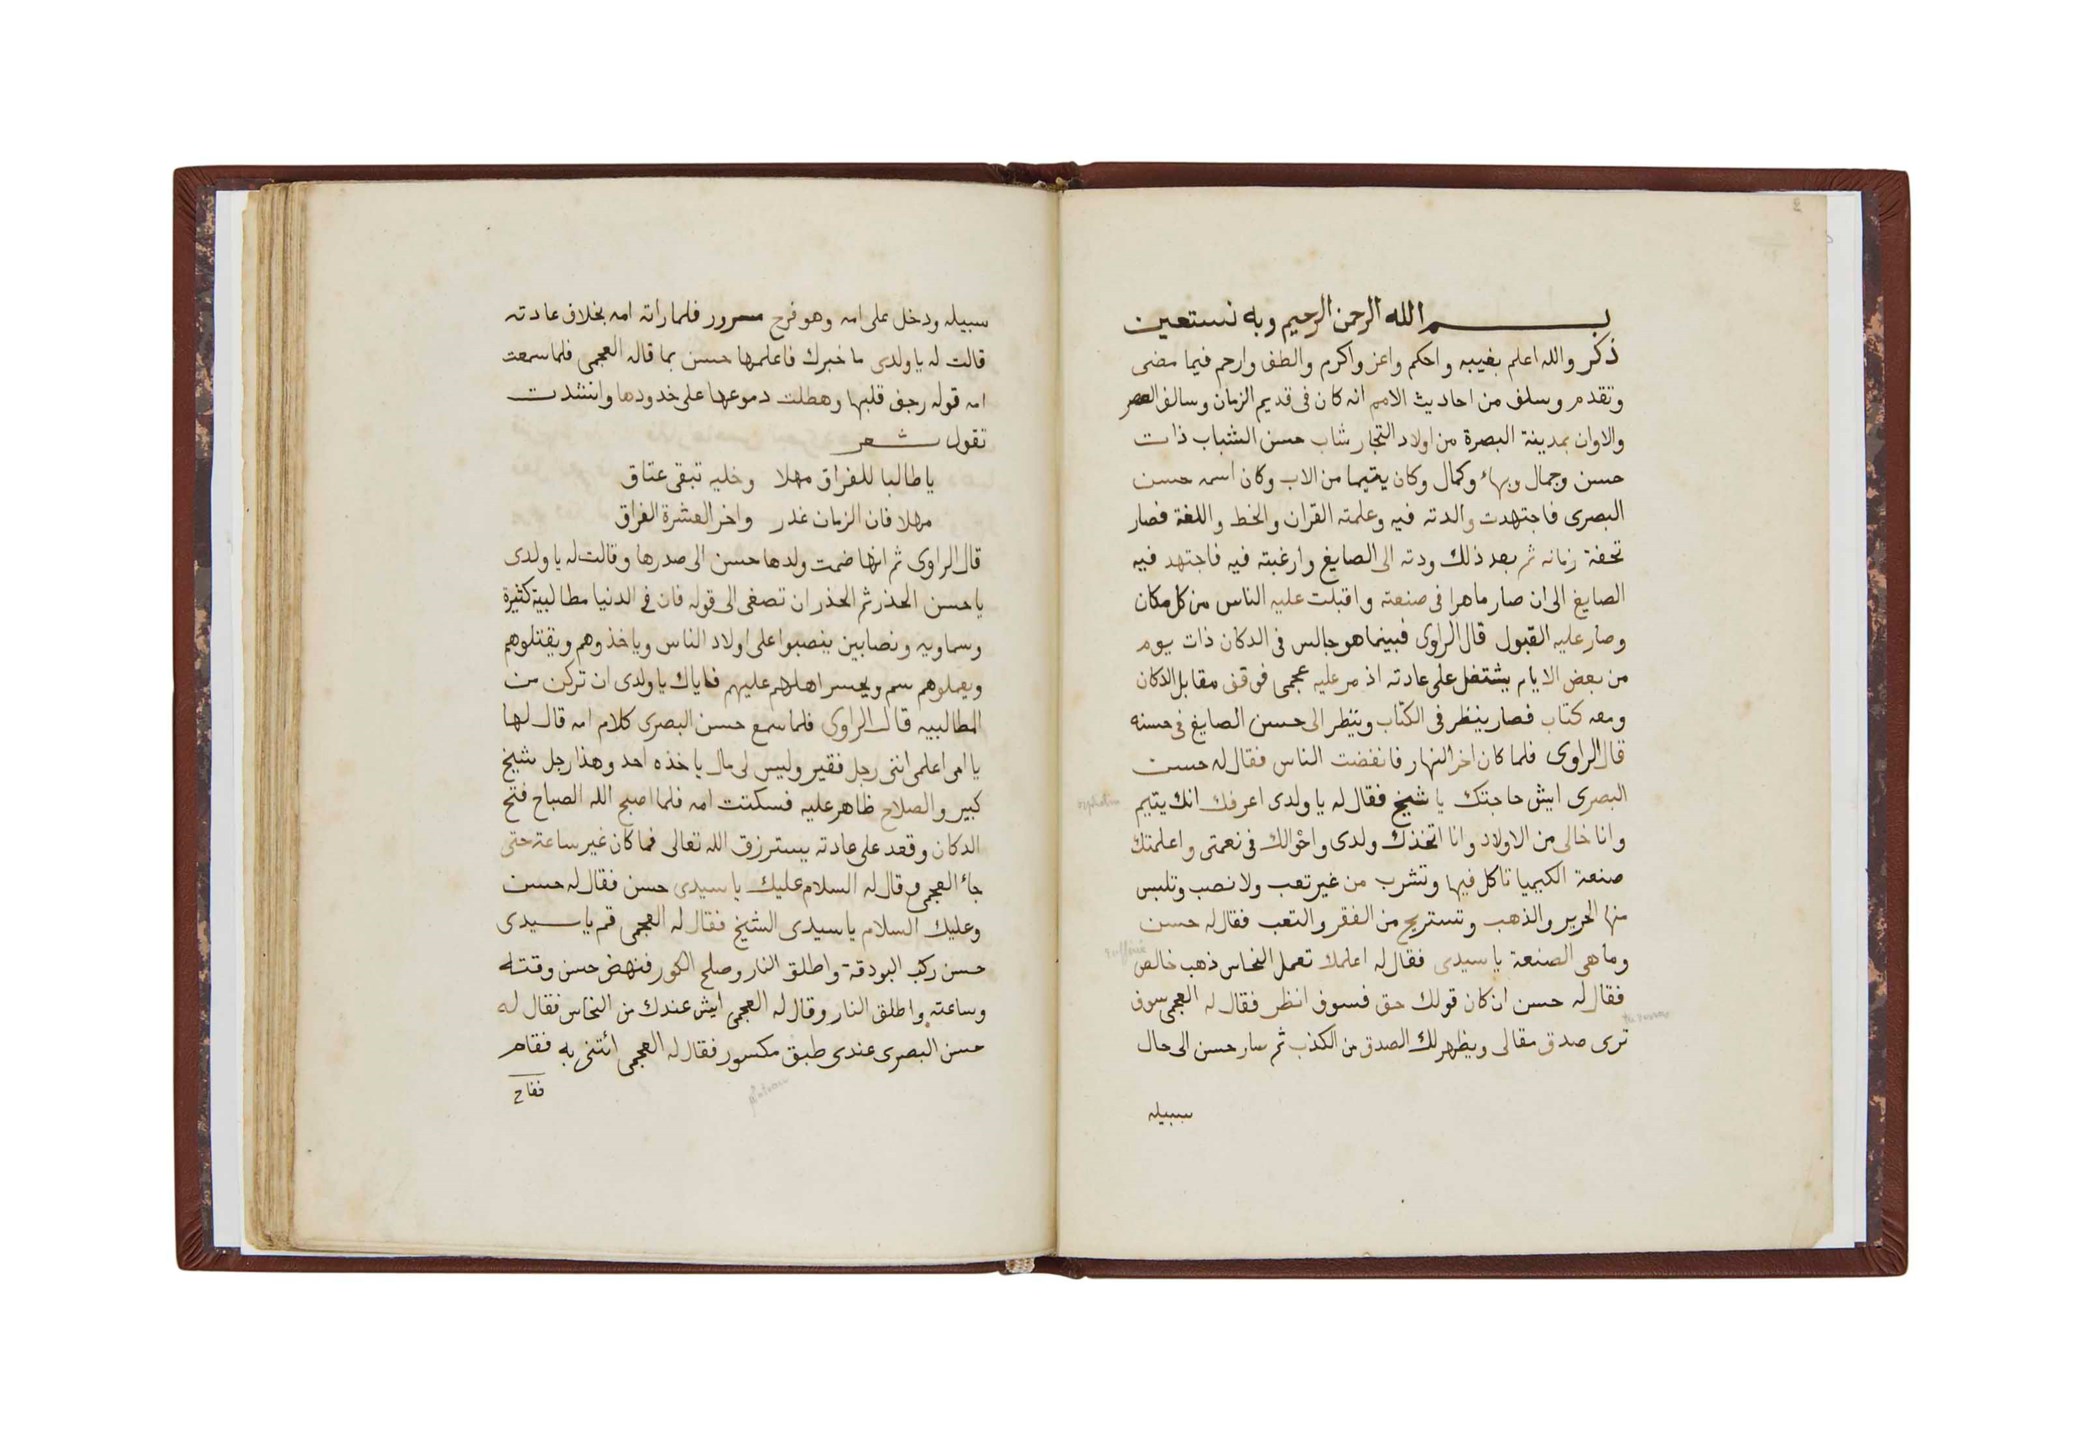 بسم الله الرحمن الرحيم وبه نستعين
ذكر والله اعلم بغيبه واحكم واعز واكرم والطف وارحم فيما مضى
وتقدم وسلف من احاديث الامم انه كان فى قديم الزمان وسالف العصر
والاوان بمدينة البصرة من اولاد التجار شاب حسن الشباب ذات
حسن وجمال وبهاء وكمال وكان يتيما من الاب وكان اسمه حسن
البصرى فاجتهدت والدته فيه وعلمته القران والخط واللغة فصار
تحفة زمانه ثم بعد ذلك ودته الى الصايغ وارغبته فيه فاجتهد فيه
الصايغ الى ان صار ماهرا فى صنعته واقبلت عليه الناس من كل مكان
وصار عليه القبول قال الراوى فبينما هو جالس فى الدكان ذات يوم
من بعض الايام يشتغل على عادته اذ مر عليه عجمى فوقف مقابل الدكان
ومعه كتاب فصار ينظر فى الكتاب وينظر الى حسن الصايغ فى حسنه
قال الراوى فلما كان اخر النهار فانفضت الناس فقال له حسن
البصرى ايش حاجتك يا شيخ فقال له يا ولدى اعرفك انك يتيم
وانا خالى من الاولاد وانا اتخذك ولدى واخولك فى نعمتى واعلمتك
صنعة الكيميا تاكل فيها وتشرب من غير تعب ولا نصب وتلبس
منها الحرير والذهب وتستريح من الفقر والتعب فقال له حسن
وما هى الصنعة يا سيدى فقال له اعلمك تعمل النحاس ذهب خالص
فقال له حسن ان كان قولك حق فسوف انظر فقال له العجمى سوف
ترى صدق مقالى ويظهر لك الصدق من الكذب ثم سار حسن الى حال
سبيله
سبيله ودخل على امه وهو فرح مسرور فلما راته امه بخلاف عادته
قالت له يا ولدى ما خبرك فاعلمها حسن بما قاله العجمى فلما سمعت
امه قوله رجف قلبها وهطلت دموعها على خدودها وانشدت
تقول شعر
يا طالبا للفراق مهلا وخليه تبقى عتاق
مهلا فان الزمان غدر واخر العشرة الفراق
قال الراوى ثم انها ضمت ولدها حسن الى صدرها وقالت له يا ولدى
يا حسن الحذر ثم الحذر ان تصغى الى قوله فان فى الدنيا مطالبية كثيرة
وسماويه ونصابين ينصبوا على اولاد الناس وياخذوهم ويقتلوهم
ويعملوهم سم ويحسر اهلهم عليهم فاياك يا ولدى ان تركن من
المطالبيه قال الراوى فلما سمع حسن البصرى كلام امه قال لها
يا امى اعلمى اننى رجل فقير وليس لى مال ياخذه احد وهذا رجل شيخ
كبير والصلاح ظاهر عليه فسكتت امه فلما اصبح الله الصباح فتح
الدكان وقعد على عادته يسترزق الله تعالى فما كان غير ساعة حتى
جاء العجمى وقال له السلام عليك يا سيدى حسن فقال له حسن
وعليك السلام يا سيدى الشيخ فقال له العجمى قم يا سيدى
حسن ركب البودقة واطلق النار وصلح الكور فنهض حسن وقتته
وساعته واطلق النار وقال له العجمى ايش عندك من النحاس فقال له
حسن البصرى عندى طبق مكسور فقال له العجمى ائتنى به فقام